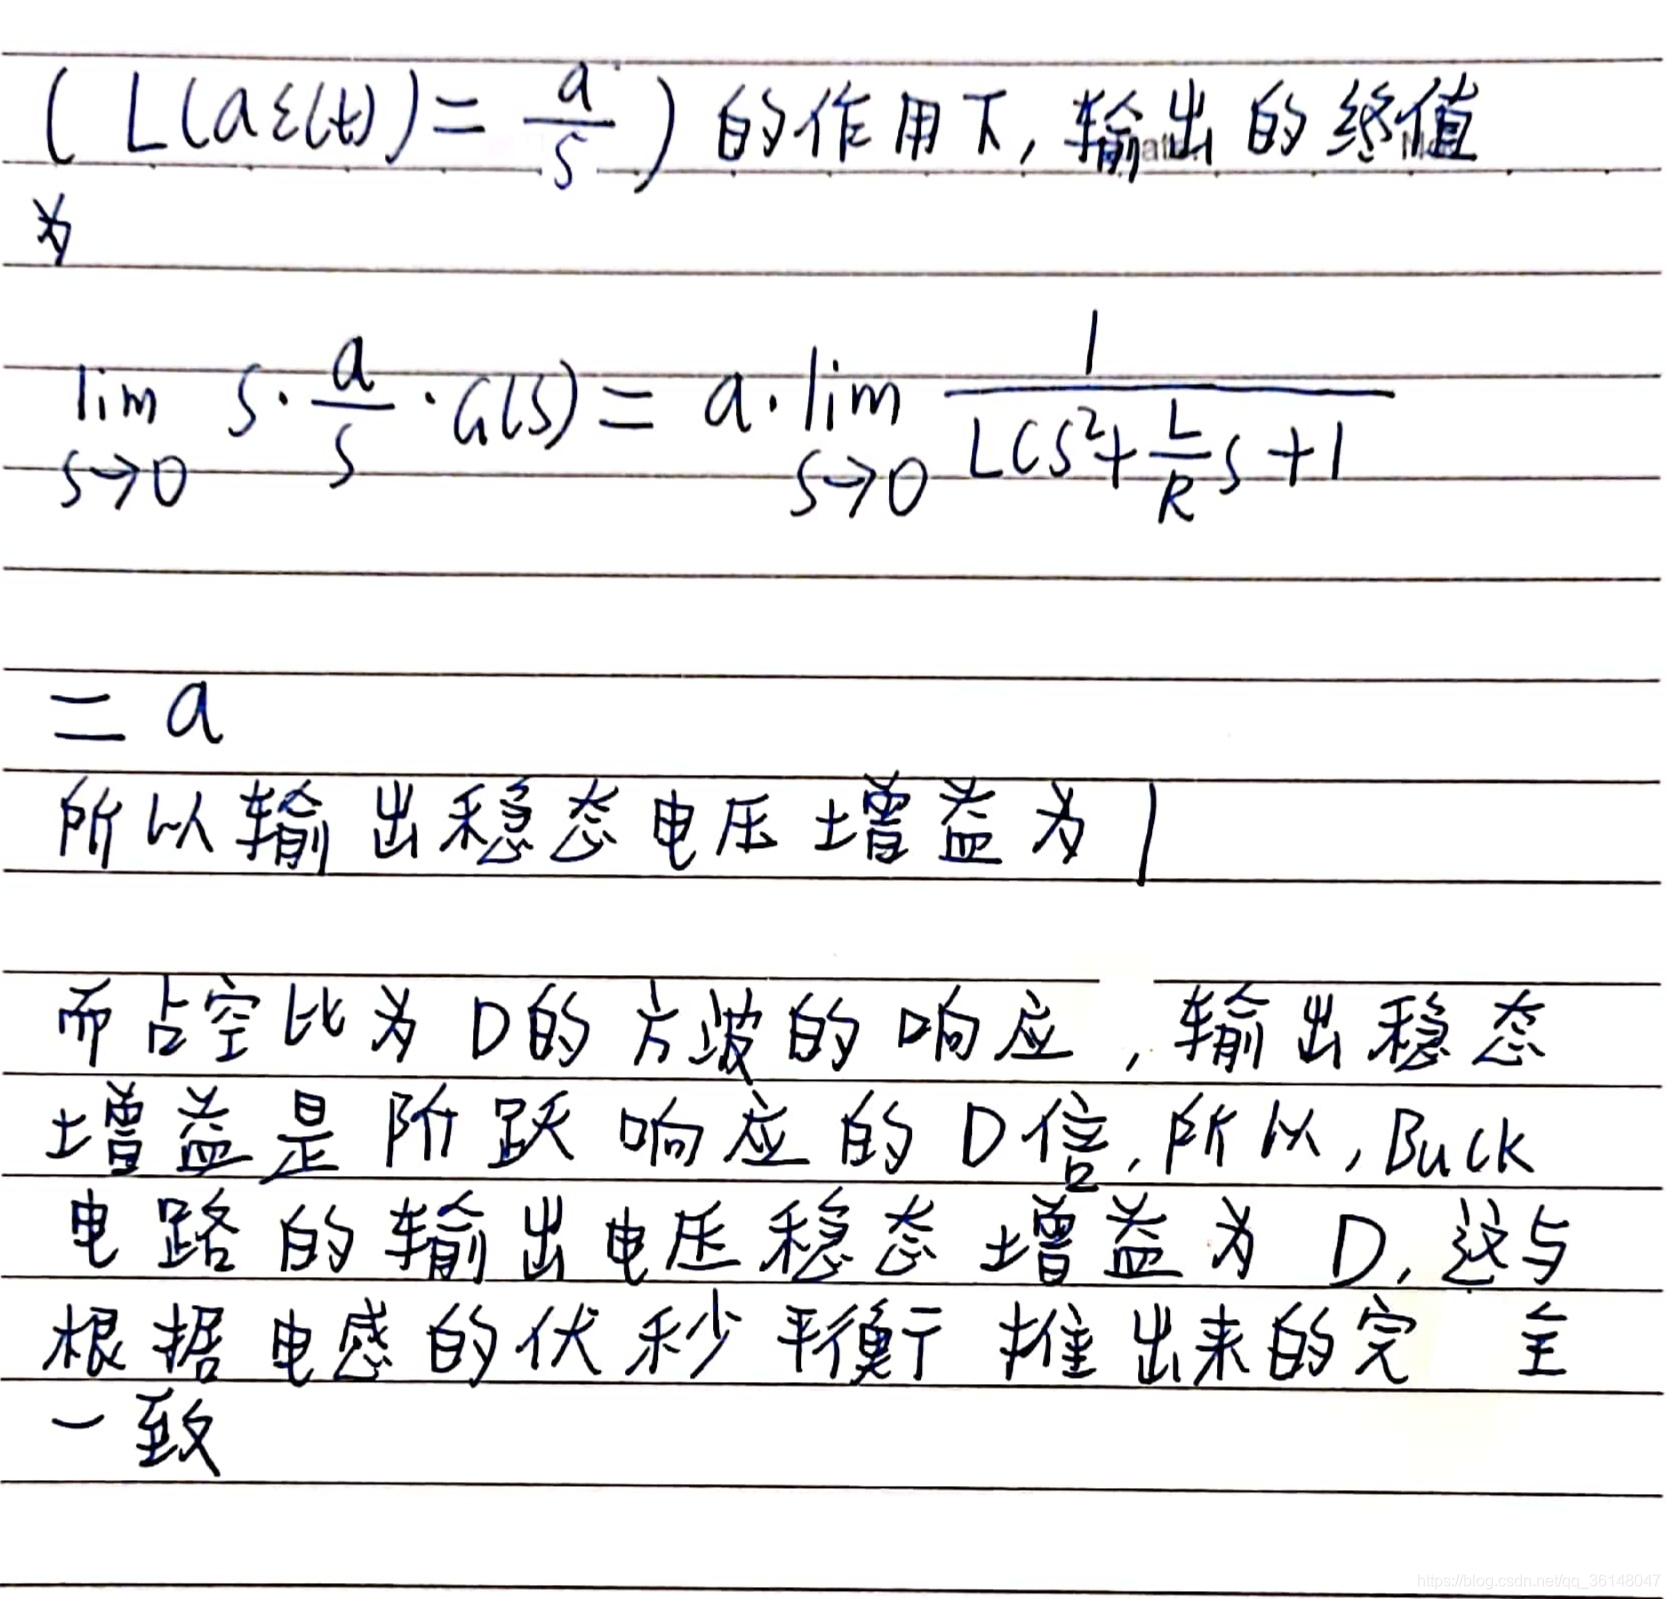 ( L(aε(t)) = a/s ) 的作用下, 输出的终值
为
lim s→0 s · a/s · G(s) = a · lim s→0 1/(LCs² + L/R s + 1)
= a
所以输出稳态电压增益为1
而占空比为D的方波的响应, 输出稳态
增益是阶跃响应的D倍, 所以, Buck
电路的输出电压稳态增益为D, 这与
根据电感的伏秒平衡推出来的完全
一致
https://blog.csdn.net/qq_36148047